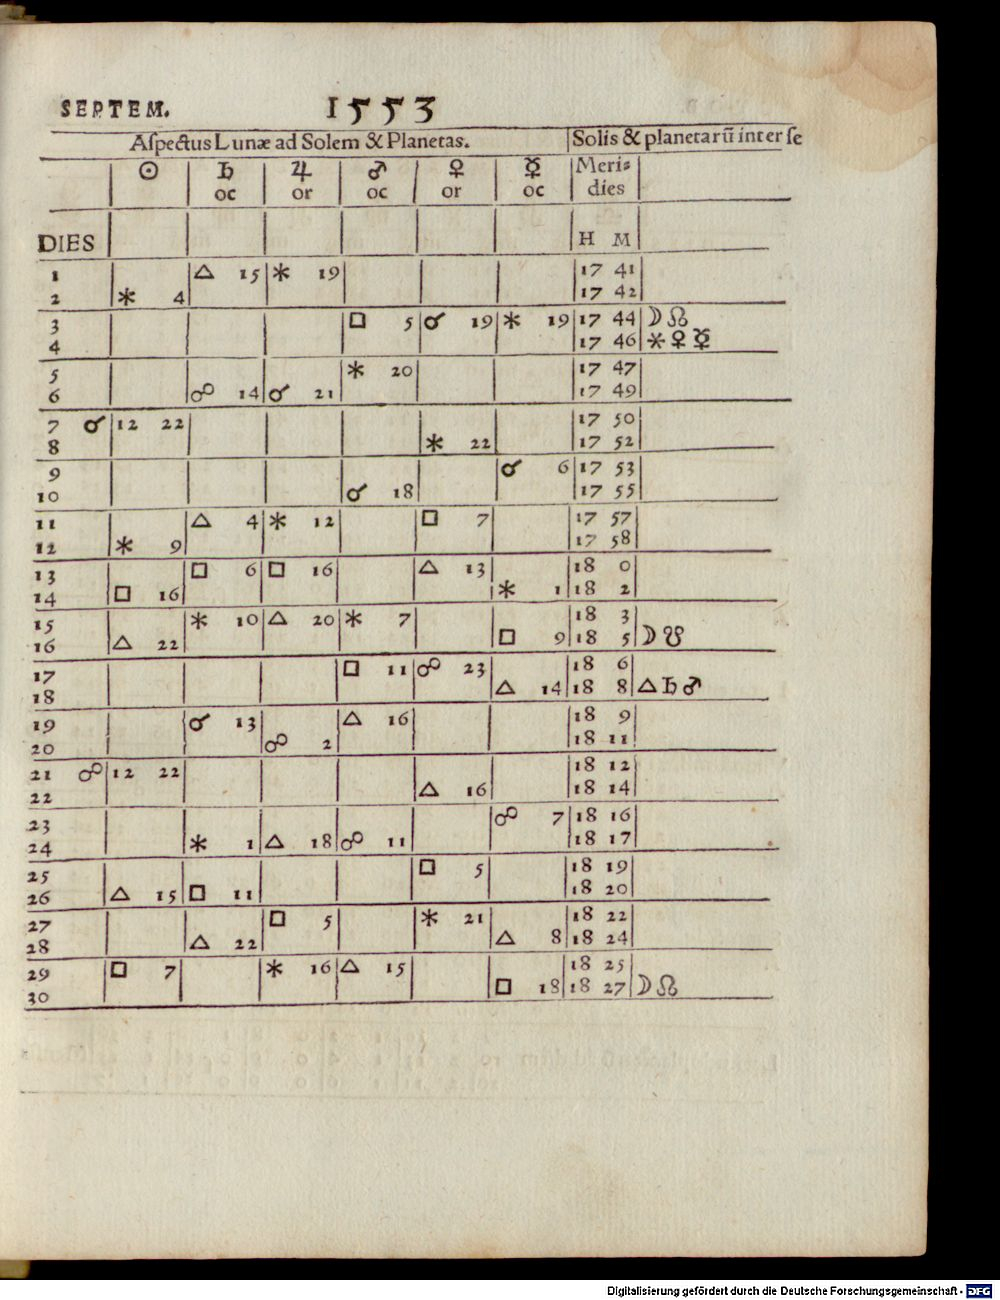 SEPTEM. 1553
Aſpectus Lunæ ad Solem & Planetas. Solis & planetarū inter ſe
☉ ♄ ♃ ♂ ♀ ☿ Meri⸗
oc or oc or oc dies
DIES H M
1 △ 15 ⚹ 19 17 41
2 ⚹ 4 17 42
3 □ 5 ☌ 19 ⚹ 19 17 44 ☽ ☊
4 17 46 ⚹ ♀ ☿
5 ⚹ 20 17 47
6 ☍ 14 ☌ 21 17 49
7 ☌ 12 22 17 50
8 ⚹ 22 17 52
9 ☌ 6 17 53
10 ☌ 18 17 55
11 △ 4 ⚹ 12 □ 7 17 57
12 ⚹ 9 17 58
13 □ 6 □ 16 △ 13 18 0
14 □ 16 ⚹ 1 18 2
15 ⚹ 10 △ 20 ⚹ 7 18 3
16 △ 22 □ 9 18 5 ☽ ☋
17 □ 11 ☍ 23 18 6
18 △ 14 18 8 △ ♄ ♂
19 ☌ 13 △ 16 18 9
20 ☍ 2 18 11
21 ☍ 12 22 18 12
22 △ 16 18 14
23 ☍ 7 18 16
24 ⚹ 1 △ 18 ☍ 11 18 17
25 □ 5 18 19
26 △ 15 □ 11 18 20
27 □ 5 ⚹ 21 18 22
28 △ 22 △ 8 18 24
29 □ 7 ⚹ 16 △ 15 18 25
30 □ 18 18 27 ☽ ☊
Digitalisierung gefördert durch die Deutsche Forschungsgemeinschaft - DFG